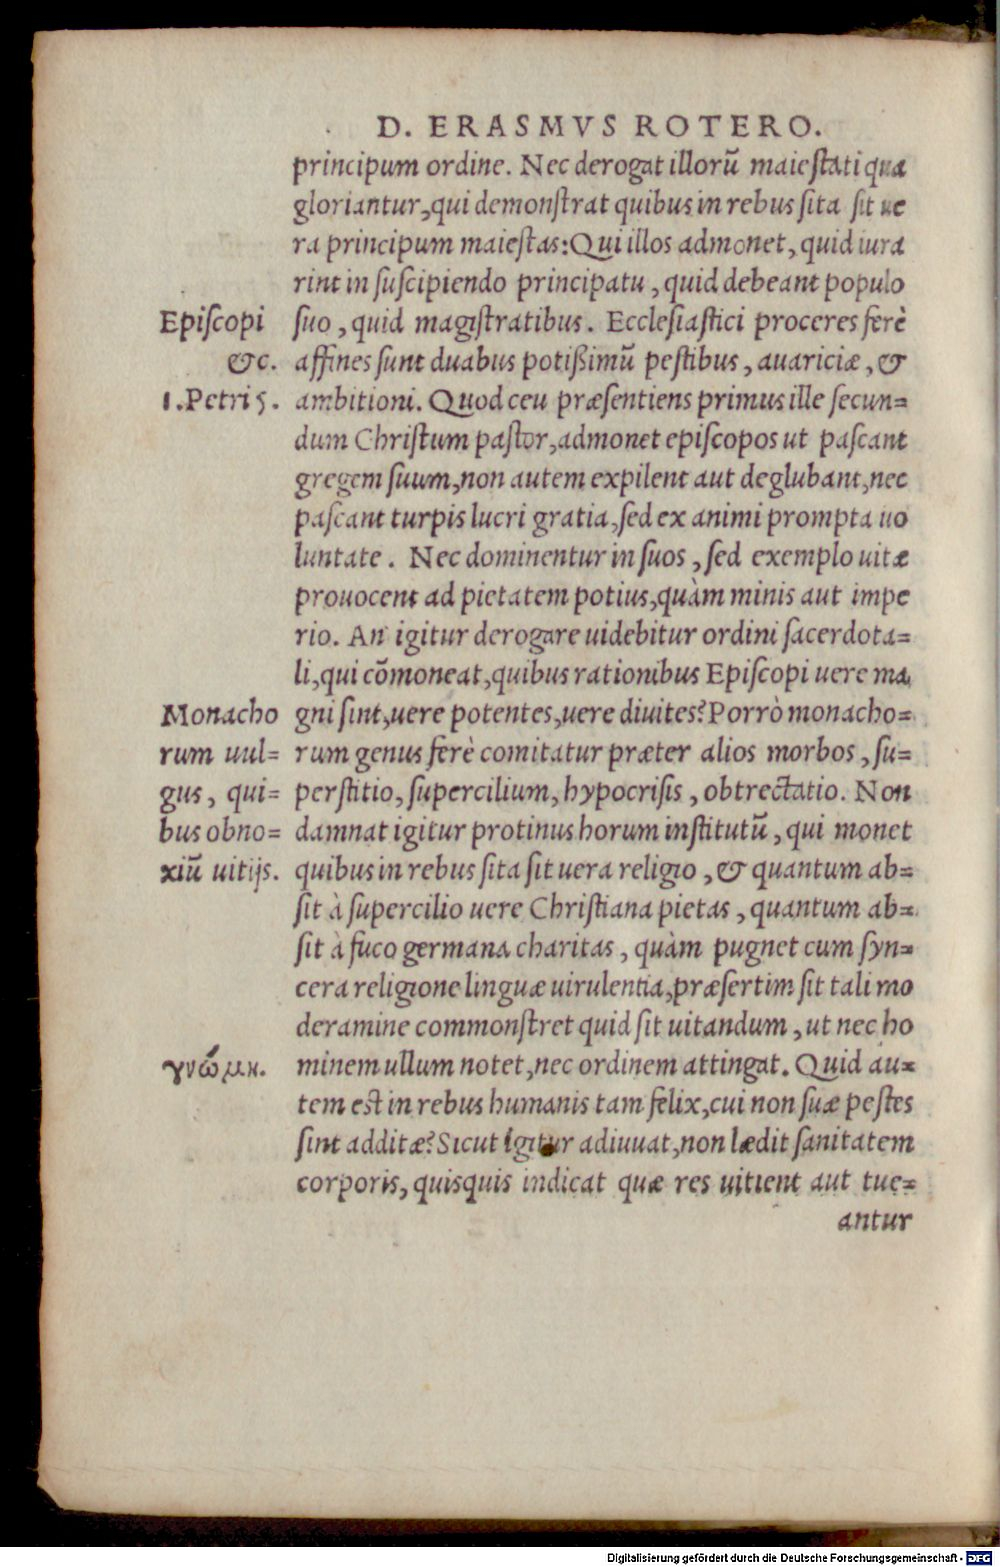 D. ERASMVS ROTERO.
principum ordine. Nec derogat illorū maiestati qua
gloriantur, qui demonstrat quibus in rebus sita sit ue
ra principum maiestas: Qui illos admonet, quid iura
rint in suscipiendo principatu, quid debeant populo
Episcopi
suo, quid magistratibus. Ecclesiastici proceres ferè
&c.
affines sunt duabus potißimū pestibus, auariciæ, &
1. Petri 5.
ambitioni. Quod ceu præsentiens primus ille secun=
dum Christum pastor, admonet episcopos ut pascant
gregem suum, non autem expilent aut deglubant, nec
pascant turpis lucri gratia, sed ex animi prompta uo
luntate. Nec dominentur in suos, sed exemplo uitæ
prouocent ad pietatem potius, quàm minis aut impe
rio. An igitur derogare uidebitur ordini sacerdota=
li, qui cōmoneat, quibus rationibus Episcopi uere ma
Monacho
gni sint, uere potentes, uere diuites? Porrò monacho=
rum uul=
rum genus ferè comitatur præter alios morbos, su=
gus, qui=
perstitio, supercilium, hypocrisis, obtrectatio. Non
bus obno=
damnat igitur protinus horum institutū, qui monet
xiū uitijs.
quibus in rebus sita sit uera religio, & quantum ab=
sit à supercilio uere Christiana pietas, quantum ab=
sit à fuco germana charitas, quàm pugnet cum syn=
cera religione linguæ uirulentia, præsertim sit tali mo
deramine commonstret quid sit uitandum, ut nec ho
γνώμη.
minem ullum notet, nec ordinem attingat. Quid au=
tem est in rebus humanis tam felix, cui non suæ pestes
sint additæ? Sicut igitur adiuuat, non lædit sanitatem
corporis, quisquis indicat quæ res uitient aut tue=
antur
Digitalisierung gefördert durch die Deutsche Forschungsgemeinschaft - DFG